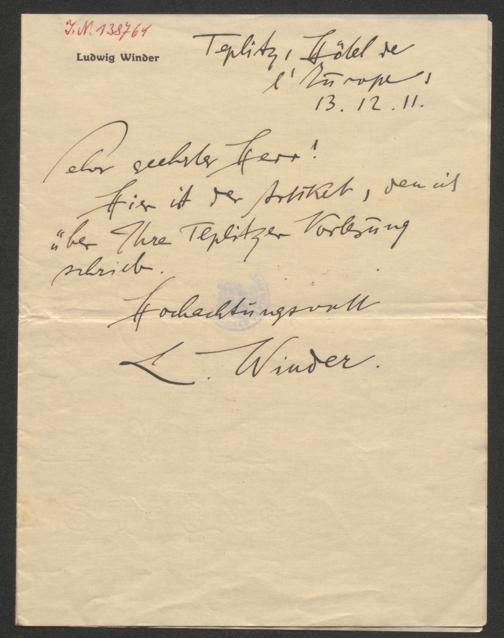 J.N. 138764
Ludwig Winder
Teplitz, Hôtel de
l'Europe,
13. 12. 11.
Sehr geehrter Herr!
Hier ist der Artikel, den ich
über Ihre Teplitzer Vorlesung
schrieb.
Hochachtungsvoll
L. Winder.